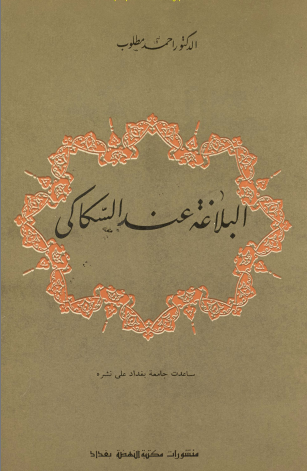 الدكتور احمد مطلوب
البلاغة عند السكاكي
ساعدت جامعة بغداد على نشره
منشورات مكتبة النهضة بغداد